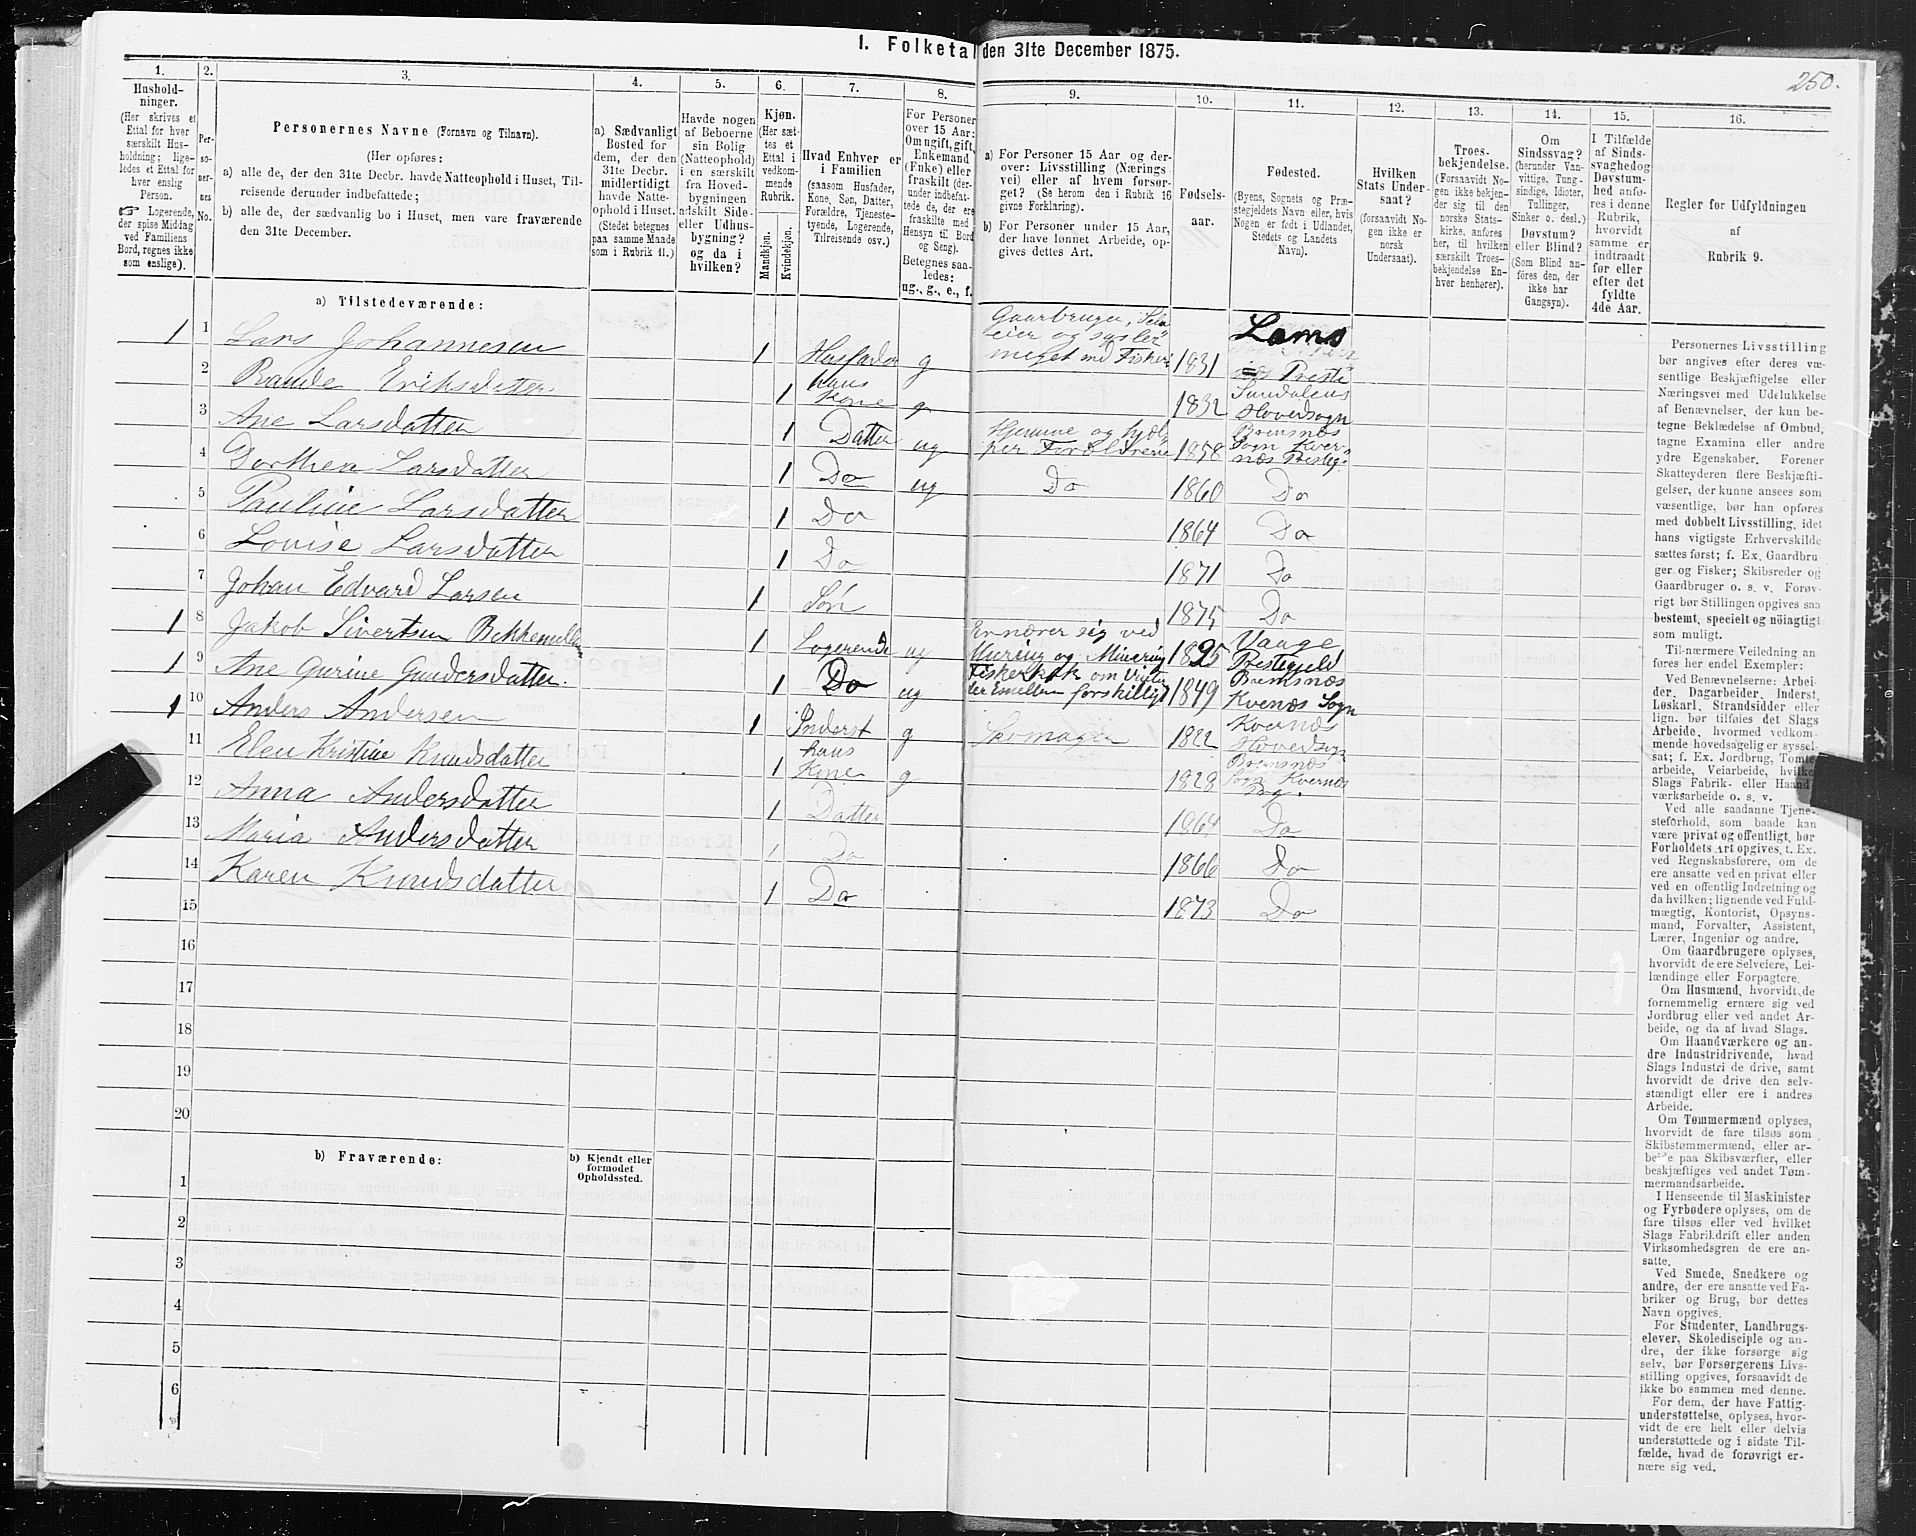 I. Folketal den 31te December 1875.
250.
1.
Hushold-
ninger.
(Her skrives et
Ettal for hver
særskilt Hus-
holdning; lige-
ledes et Ettal for
hver enslig
Person.
☞ Logerende,
der spise Middag
ved Familiens
Bord, regnes ikke
som enslige).
2.
Per-
so-
ner-
nes
No.
3.
Personernes Navne (Fornavn og Tilnavn).
(Her opføres:
a) alle de, der den 31te Decbr. havde Natteophold i Huset, Til-
reisende derunder indbefattede;
b) alle de, der sædvanlig bo i Huset, men vare fraværende
den 31te December.
4.
a) Sædvanligt
Bosted for
dem, der den
31te Decbr.
midlertidigt
havde Natte-
ophold i Huset.
(Stedet betegnes
paa samme Maade
som i Rubrik 11.)
5.
Havde nogen
af Beboerne
sin Bolig
(Natteophold)
i en særskilt
fra Hoved-
bygningen
adskilt Side-
eller Udhus-
bygning?
og da i
hvilken?
6.
Kjøn.
(Her sæt-
tes et
Ettal i
vedkom-
mende
Rubrik.
Mandkjøn.
Kvindekjøn.
7.
Hvad Enhver er
i Familien
(saasom Husfader,
Kone, Søn, Datter,
Forældre, Tjeneste-
tyende, Logerende,
Tilreisende osv.)
8.
For Personer
over 15 Aar:
Om ugift, gift,
Enkemand
(Enke) eller
fraskilt (der-
under indbefat-
tede de, der ere
fraskilte med
Hensyn til Bord
og Seng).
Betegnes saa-
ledes:
ug., g., e., f.
9.
a) For Personer 15 Aar og der-
over: Livsstilling (Nærings-
vei) eller af hvem forsør-
get? (Se herom den i Rubrik 16
givne Forklaring).
b) For Personer under 15 Aar,
der have lønnet Arbeide, op-
gives dettes Art.
10.
Fødsels-
aar.
11.
Fødested.
(Byens, Sognets og Præ-
stegjeldets Navn eller, hvis
Nogen er født i Udlandet,
Stedets og Landets
Navn).
12.
Hvilken
Stats Under-
saat?
(forsaavidt No-
gen ikke er
norsk
Undersaat).
13.
Troes-
bekjendelse.
(Forsaavidt No-
gen ikke bekjen-
der sig til den
norske Stats-
kirke, anføres
her, til hvilken
særskilt Troes-
bekjendelse En-
hver henhører).
14.
Om
Sindssvag?
(herunder Van-
vittige, Tung-
sindige, Idioter,
Tullinger,
Sinker o. desl.)
Døvstum?
eller Blind?
(Som Blind an-
føres den, der
ikke har
Gangsyn).
15.
I Tilfælde
af Sinds-
svaghed og
Døvstum-
hed anfø-
res i denne
Rubrik,
hvorvidt
samme er
indtraadt
før eller
efter det
fyldte
4de Aar.
16.
Regler for Udfyldningen
af
Rubrik 9.
a) Tilstedeværende:
1 1 Lars Johannesen 1 Husfader g Gaarbruger, Selv eier og sysler meget med Fiskeri 1831 Lams Preste
2 Rande Eriksdatter 1 hans Kone g 1832 Sundalens Hovedsogn
3 Ane Larsdatter 1 Datter ug Hjemme og hjælper Forældrene 1858 Bremsnæs Sogn Kvernæs Prestg.
4 Dorthea Larsdatter 1 Do ug Do 1860 Do
5 Pauline Larsdatter 1 Do 1864 Do
6 Lovise Larsdatter 1 Do 1871 Do
7 Johan Edvard Larsen 1 Søn 1875 Do
1 8 Jakob Sivertsen 1 Logerende ug Ernærer sig ved Muring og Minering 1825 Vaage Prestegjeld
1 9 Ane Gurine Gundersdatter. 1 Do ug 1849 Bremsnæs Kvenæs Sogn
1 10 Anders Andersen 1 Inderst g Skomager 1822 Kvernæs Hovedsogn
11 Elen Kristine Knudsdatter 1 hans Kone g 1828 Bremsnæs Sogn Kvernæs Pg.
12 Anna Andersdatter 1 Datter 1864 Do
13 Maria Andersdatter 1 Do 1866 Do
14 Karen Knudsdatter 1 Do 1873 Do
15
16
17
18
19
20
b) Fraværende:
b) Kjendt eller
formodet
Opholdssted.
1
2
3
4
5
6
Personernes Livsstilling
bør angives efter deres væ-
sentlige Beskjæftigelse eller
Næringsvei med Udelukkelse
af Benævnelser, der kun be-
tegne Beklædelse af Ombud,
tagne Examina eller andre
ydre Egenskaber. Forener
Skatteyderen flere Beskjæfti-
gelser, der kunne ansees som
væsentlige, bør han opføres
med dobbelt Livsstilling, idet
hans vigtigste Erhvervskilde
sættes først; f. Ex. Gaardbru-
ger og Fisker; Skibsreder og
Gaardbruger o. s. v. Forøv-
rigt bør Stillingen opgives saa
bestemt, specielt og nøiagtigt
som muligt.
Til nærmere Veiledning an-
føres her endel Exempler:
Ved Benævnelserne: Arbei-
der, Dagarbeider, Inderst,
Løskarl, Strandsidder eller
lign. bør tilføies det Slags
Arbeide, hvormed vedkom-
mende hovedsagelig er syssel-
sat; f. Ex. Jordbrug, Tomte-
arbeide, Veiarbeide, hvilket
Slags Fabrik- eller Haand-
værksarbeide o. s. v.
Ved alle saadanne Tjene-
steforhold, som baade kan
være privat og offentligt, bør
Forholdets Art opgives, t. Ex.
ved Regnskabsførere, om de
ere ansatte ved en privat eller
ved en offentlig Indretning og
da hvilken; lignende ved Fuld-
mægtig, Kontorist, Opsyns-
mand, Forvalter, Assistent,
Lærer, Ingeniør og andre.
Om Gaardbrugere oplyses,
hvorvidt de ere Selveiere, Lei-
lændinge eller Forpagtere.
Om Husmænd, hvorvidt de
fornemmelig ernære sig ved
Jordbrug eller ved andet Ar-
beide, og da af hvad Slags.
Om Haandværkere og an-
dre Industridrivende, hvad
Slags Industri de drive, samt
hvorvidt de drive den selv-
stændigt eller ere i andres
Arbeide.
Om Tømmermænd oplyses,
hvorvidt de fare tilsøs som
Skibstømmermænd, eller ar-
beide paa Skibsværfter, eller
beskjæftiges ved andet Tøm-
mermandsarbeide.
I Henseende til Maskinister
og Fyrbødere oplyses, om de
fare tilsøs eller ved hvilket
Slags Fabrikdrift eller anden
Virksomhedsgren de ere an-
satte.
Ved Smede, Snedkere og
andre, der ere ansatte ved Fa-
briker og Brug, bør dettes
Navn opgives.
For Studenter, Landbrugs-
elever, Skoledisciple og an-
dre, der ikke forsørge sig
selv, bør Forsørgerens Livs-
stilling opgives, forsaavidt de
ikke bo sammen med denne.
For dem, der have Fattig-
understøttelse, oplyses, hvor-
vidt de ere helt eller delvis
understøttede og i sidste Til-
fælde, hvad de forøvrigt er-
nære sig ved.